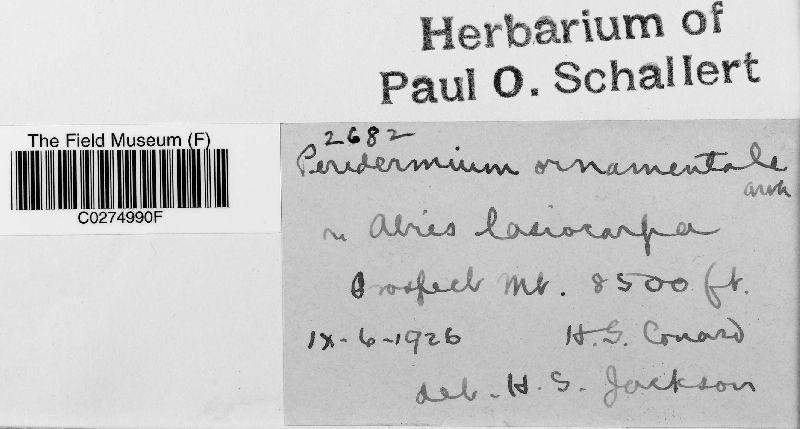 Herbarium of
Paul O. Schallert
The Field Museum (F)
C0274990F
2682
Peridermium ornamentale
Arth
on Abies lasiocarpa
Prospect Mt. 8500 ft.
IX-6-1926 H.S. Conard
det. H. S. Jackson